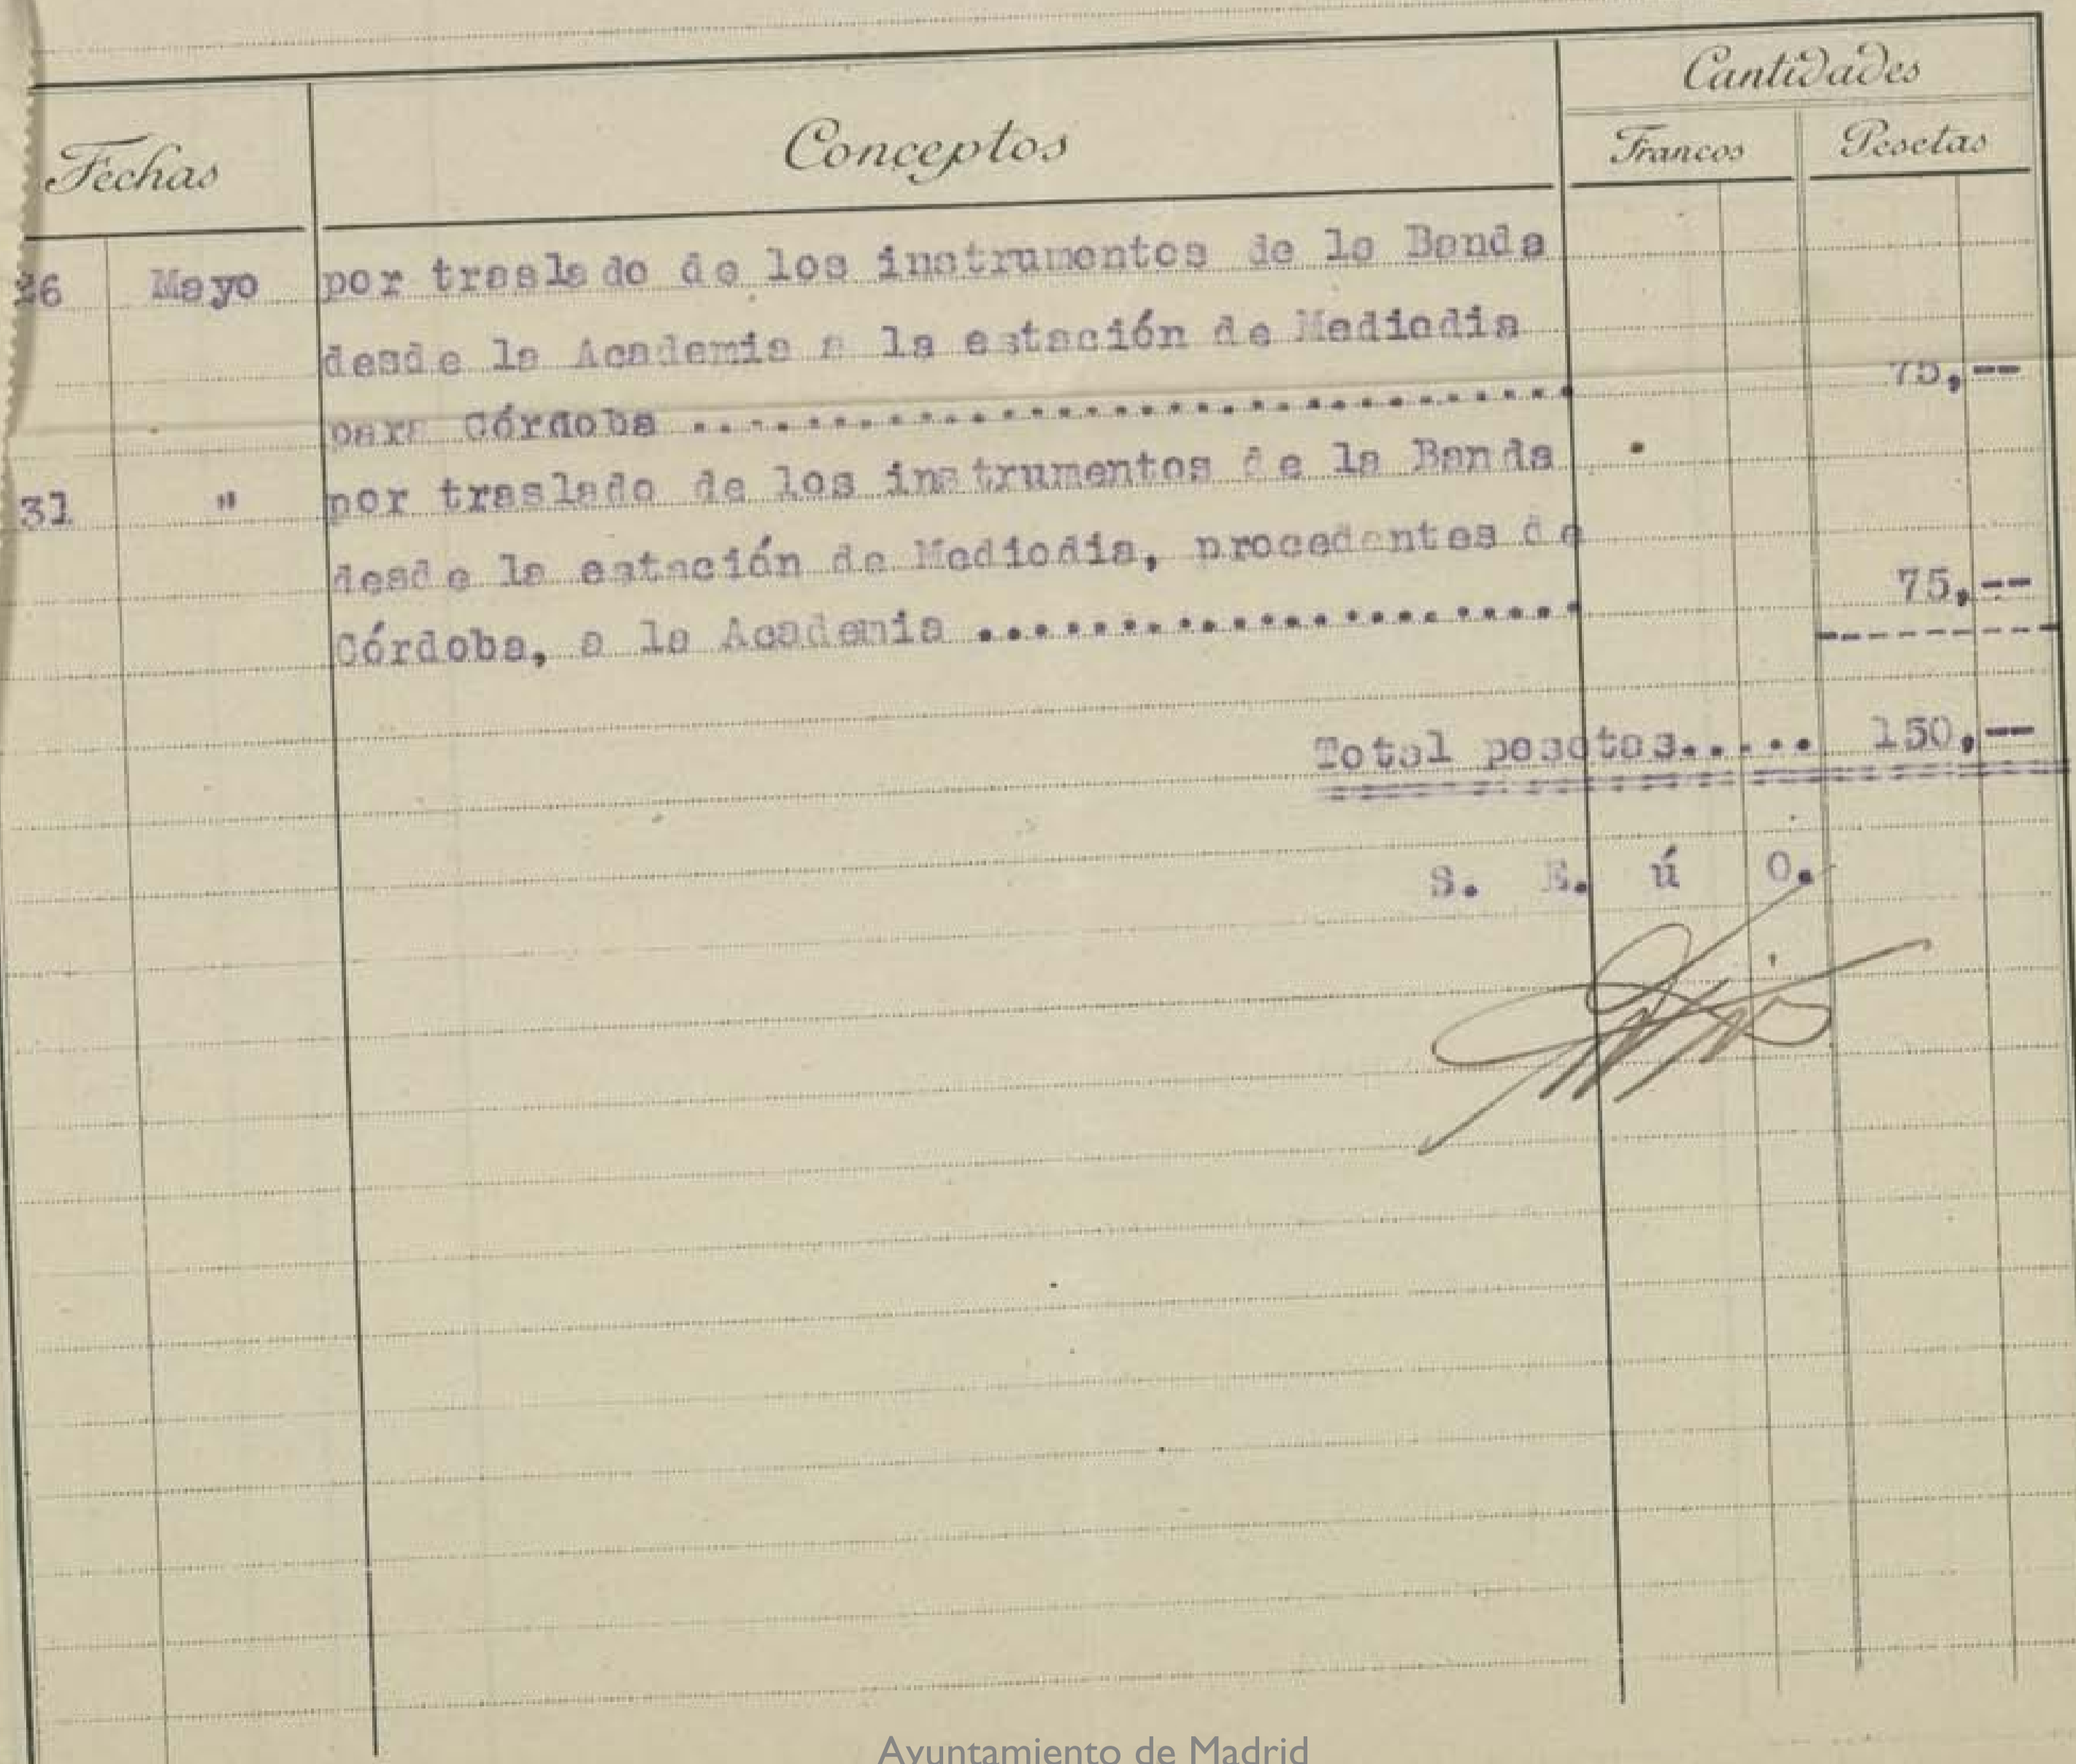 Cantidades
Fechas Conceptos Francos Pesetas
26 Mayo por traslado de los instrumentos de la Banda
desde la Academia a la estación de Mediodia
para Córdoba ................................ 75,--
31 " por traslado de los instrumentos de la Banda
desde la estación de Mediodia, procedentes de
Córdoba, a la Academia ..................... 75,--
Total pesetas..... 150,--
S. E. ú O.
Ayuntamiento de Madrid